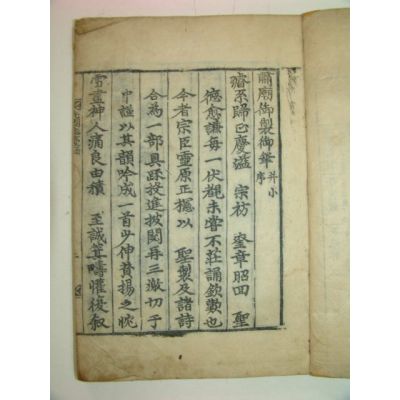 肅廟御製御筆 并小序
璿系歸正慶溢 宗枋 奎章昭回 聖
德愈謙每一伏覩未嘗不莊誦欽歎也
今者宗臣靈原正櫶以 聖製及諸詩
合為一部具疏投進披閱再三激切于
中謹以其韻吟成一首少伸賛揚之忱
雪盡神人痛良由積 至誠箕疇懽後叙